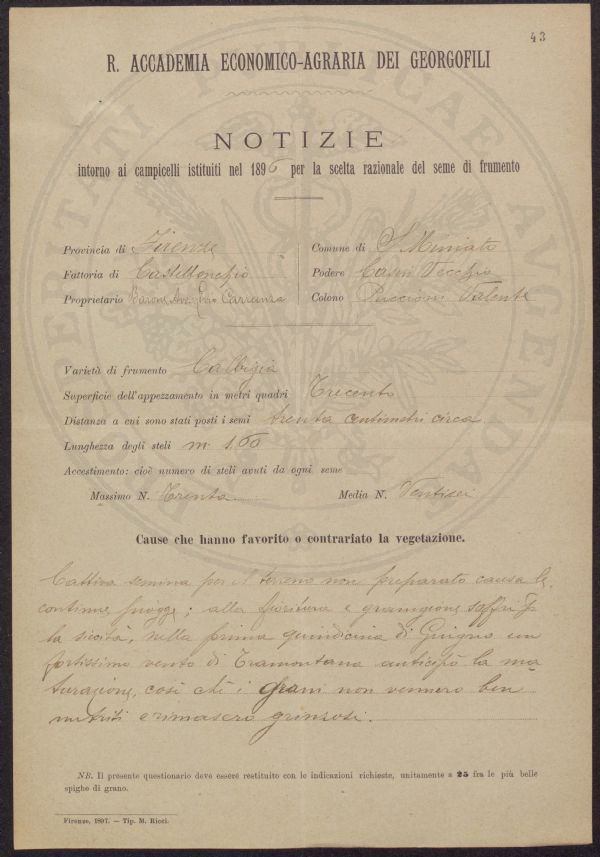 43
R. ACCADEMIA ECONOMICO-AGRARIA DEI GEORGOFILI
NOTIZIE
intorno ai campicelli istituiti nel 1896 per la scelta razionale del seme di frumento
Provincia di Firenze
Comune di S Miniato
Fattoria di Castellonchio
Podere Capri Vecchio
Proprietario Barone Carranza
Colono Puccioni Valente
Varietà di frumento Calbigia
Superficie dell'appezzamento in metri quadri Trecento
Distanza a cui sono stati posti i semi trenta centimetri circa
Lunghezza degli steli m. 1.60
Accestimento: cioè numero di steli avuti da ogni seme
Massimo N. Trenta
Media N. Ventisei
Cause che hanno favorito o contrariato la vegetazione.
Cattiva semina per il terreno non preparato causa le
continue piogge; alla fioritura e granigione soffrì
la siccità, nella prima quindicina di Giugno un
fortissimo vento di Tramontana anticipò la ma-
turazione, così chè i grani non vennero ben
nutriti e rimasero grinzosi.
NB. Il presente questionario deve essere restituito con le indicazioni richieste, unitamente a 25 fra le più belle
spighe di grano.
Firenze, 1897. — Tip. M. Ricci.
PROSPERITATI PUBLICAE AUGENDAE